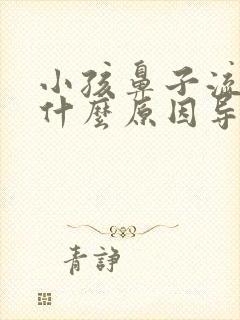 小孩鼻子流
什麼原因导
青諍